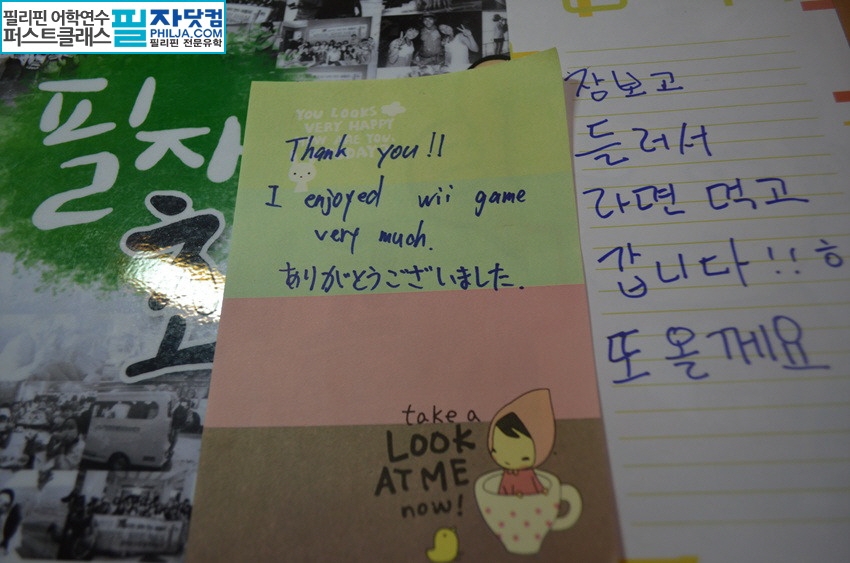 필리핀 어학연수
퍼스트클래스
필자닷컴
PHILJA.COM
필리핀 전문유학
필자
YOU LOOKS
VERY HAPPY
Thank you!!
I enjoyed wii game
very much.
ありがとうございました.
take a
LOOK
AT ME
now!
장보고
들러서
라면 먹고
갑니다!! ㅎ
또 올께요